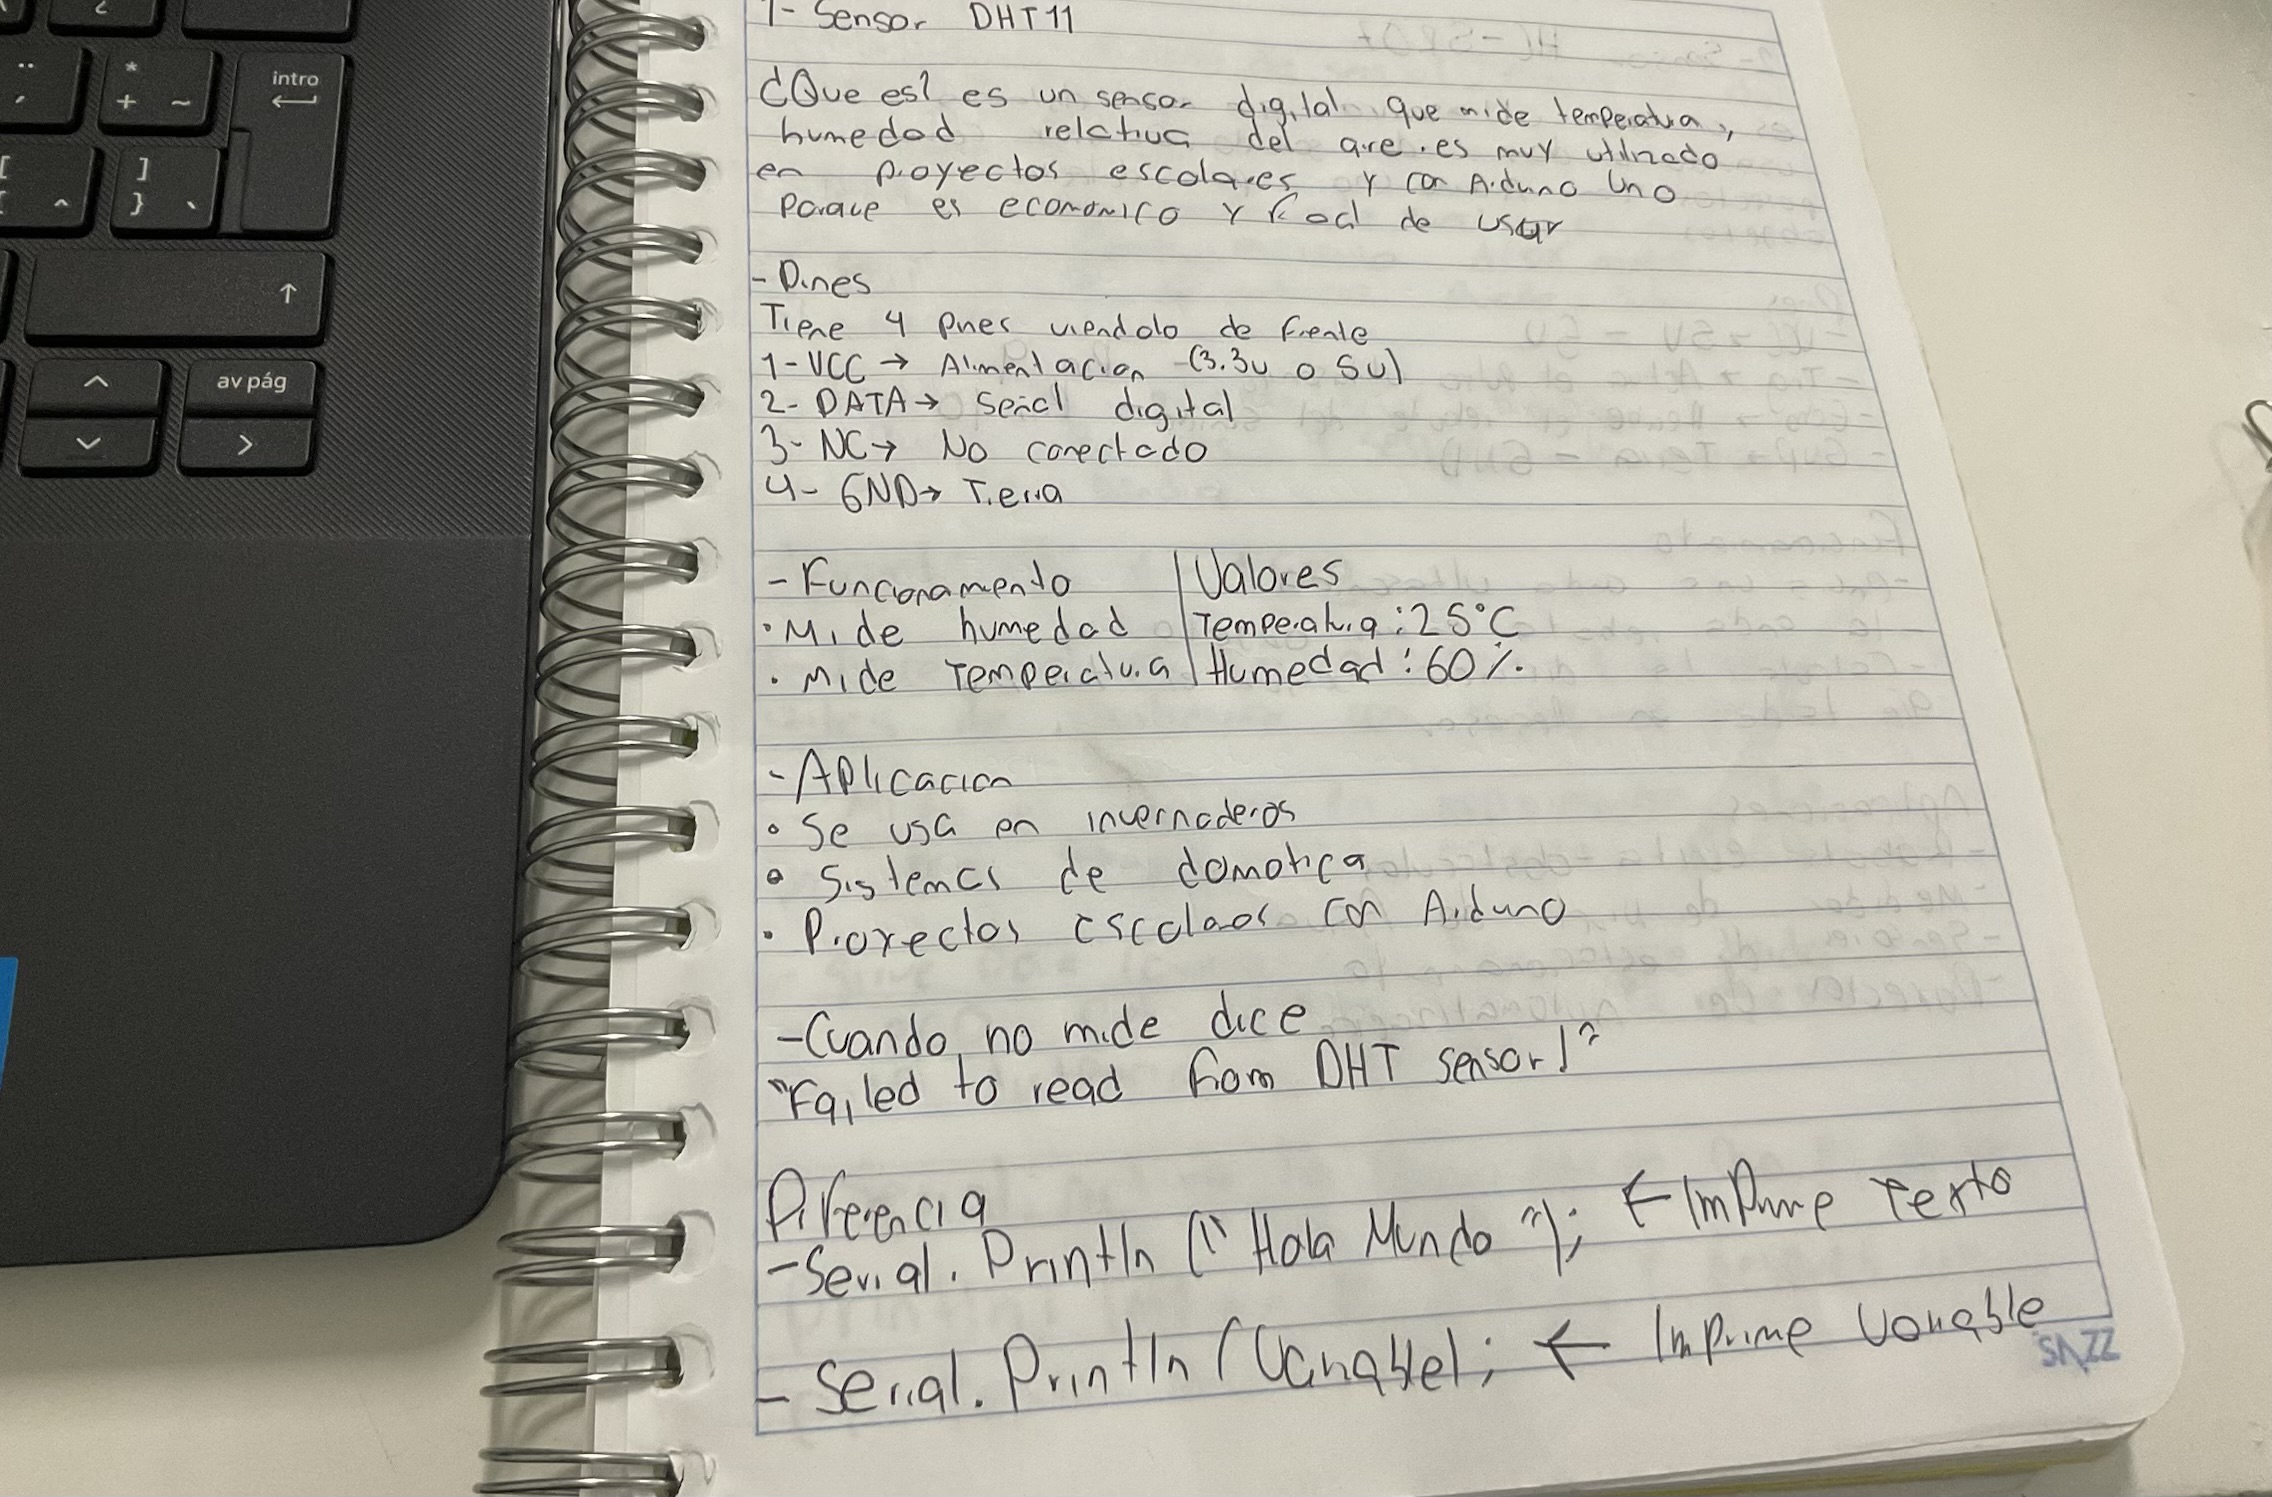 1- Sensor DHT11
¿Que es? es un sensor digital que mide temperatura y
humedad relativa del aire. es muy utilizado
en proyectos escolares y con Arduino Uno
Porque es economico y facil de usar
- Pines
Tiene 4 pines viendolo de frente
1- VCC → Alimentacion - (3.3v o 5v)
2- DATA → Señal digital
3- NC → No conectado
4- GND → Tierra
- Funcionamento | Valores
• Mide humedad | Temperatura : 25°C
• Mide Temperatura | Humedad : 60%
- Aplicacion
• Se usa en invernaderos
• Sistemas de domotica
• Proyectos escolares con Arduino
- Cuando no mide dice
"Failed to read from DHT sensor!"
Diferencia
- Serial. Println (" Hola Mundo "); ← Imprime Texto
- Serial. Println (Variable); ← Imprime Variable
SAZZ
intro
av pág